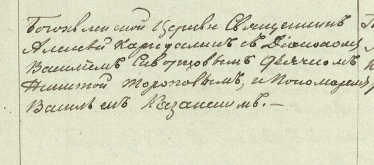 Богоявленской Церкви Священникъ
Алексѣй Кардалинъ съ Діакономъ
Василіемъ Сиворцовымъ Дьячкомъ
Никитой Тороповымъ, и Пономаремъ
Василіемъ Казанскимъ. —